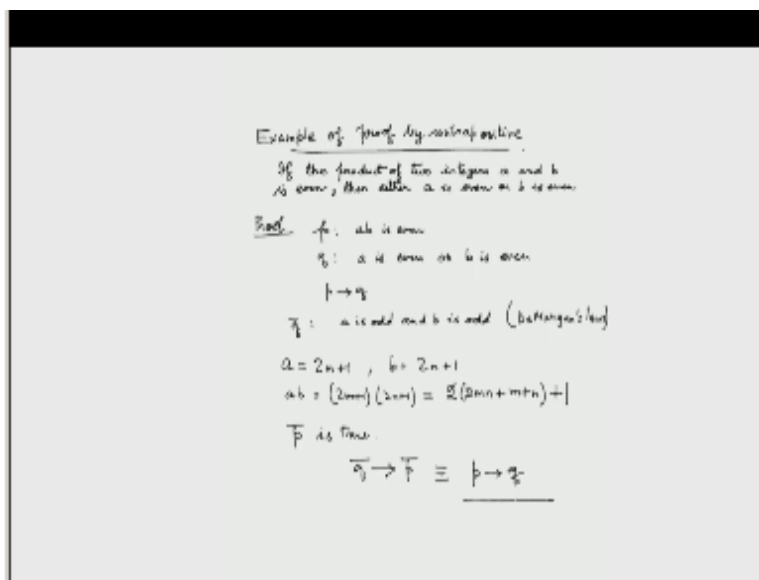 Example of proof by contrapositive
If the product of two integers a and b
is even, then either a is even or b is even
Proof p: ab is even
q: a is even or b is even
p → q
q̅: a is odd and b is odd (DeMorgan's law)
a = 2m+1, b = 2n+1
ab = (2m+1)(2n+1) = 2(2mn + m+n) + 1
p̅ is true.
q̅ → p̅ ≡ p → q